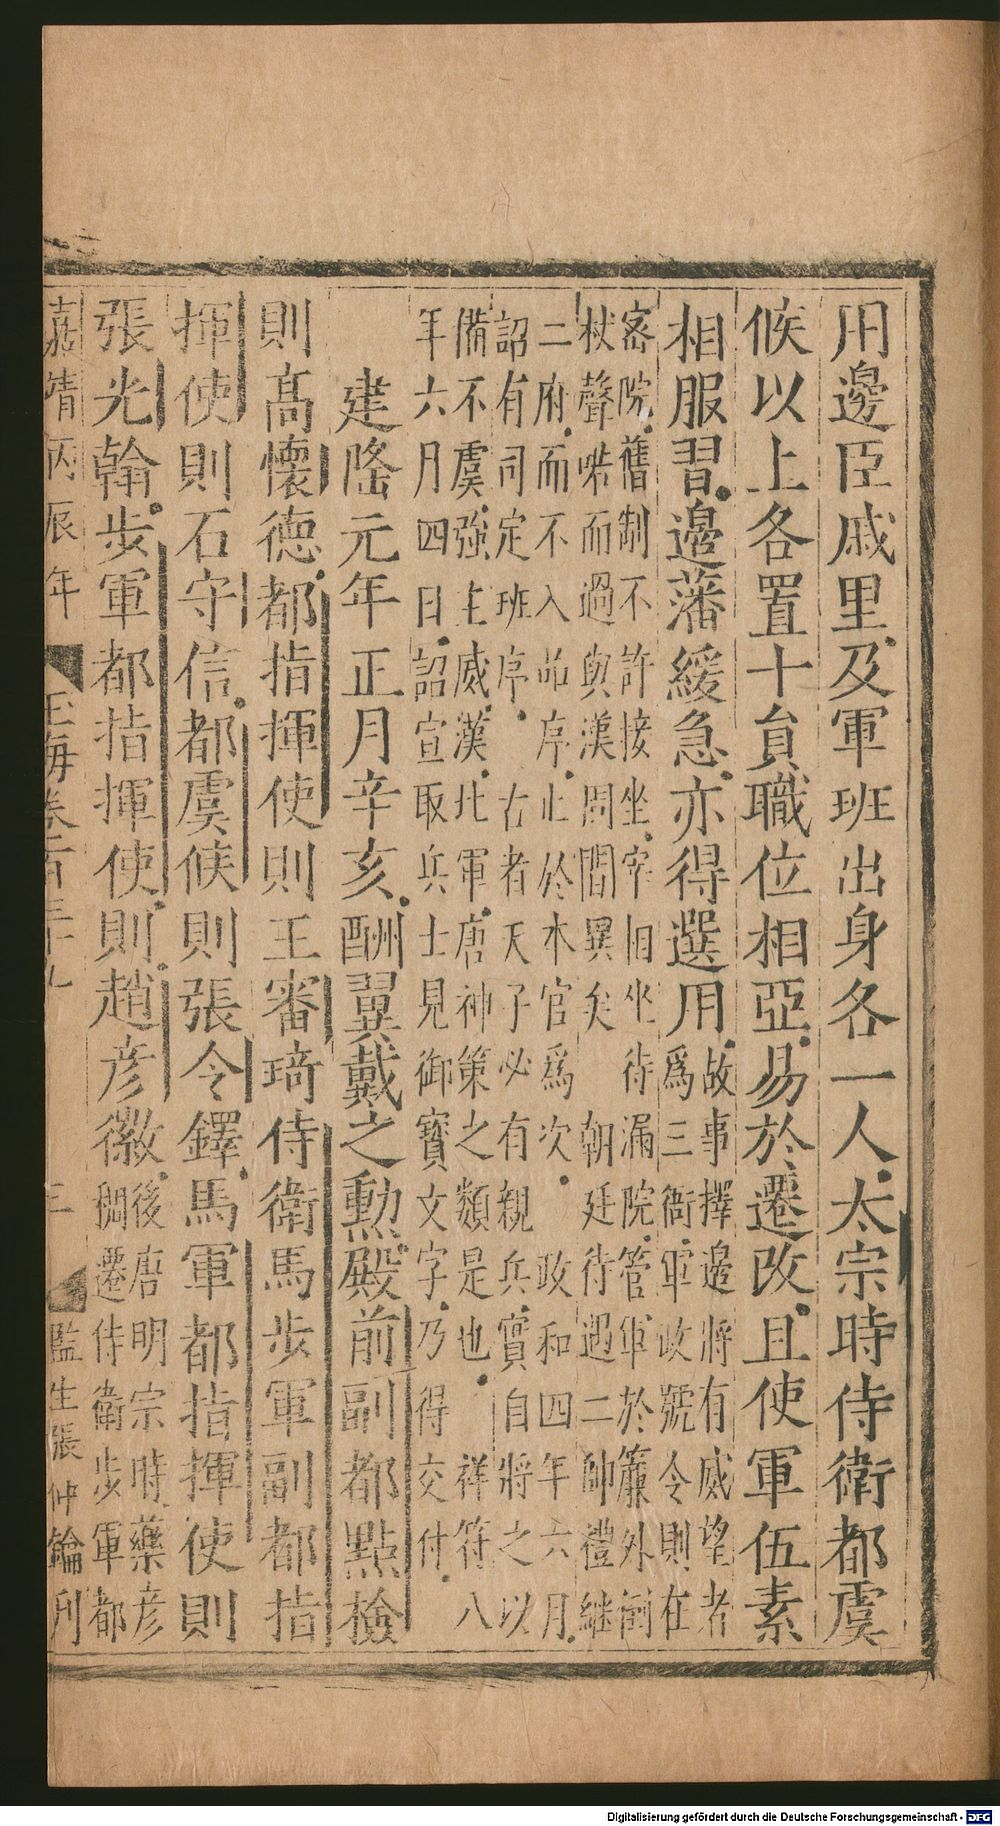 用邊臣戚里及軍班出身各一人太宗時侍衛都虞
候以上各置十員職位相亞易於遷改且使軍伍素
相服習邊藩緩急亦得選用
故事擇邊將有威望者
爲三衙軍政號令則在
密院舊制不許接坐宰相坐待漏院管軍於簾外
杖聲喏而過與漢周間異矣 朝廷待遇二帥禮繼
二府而不入品序止於本官爲次 政和四年六月
詔有司定班序 古者天子必有親兵實自將之以
備不虞強主威漢北軍唐神策之類是也 祥符八
年六月四日詔宣取兵士見御寶文字乃得交付
建隆元年正月辛亥酬翼戴之勳殿前副都點檢
則高懷德都指揮使則王審琦侍衛馬步軍副都指
揮使則石守信都虞候則張令鐸馬軍都指揮使則
張光翰步軍都指揮使則趙彦徽
後唐明宗時藥彦
稠遷侍衛步軍都
嘉靖丙辰年 玉海卷一百三十九 三 監生張仲鑰刊
Digitalisierung gefördert durch die Deutsche Forschungsgemeinschaft - DFG